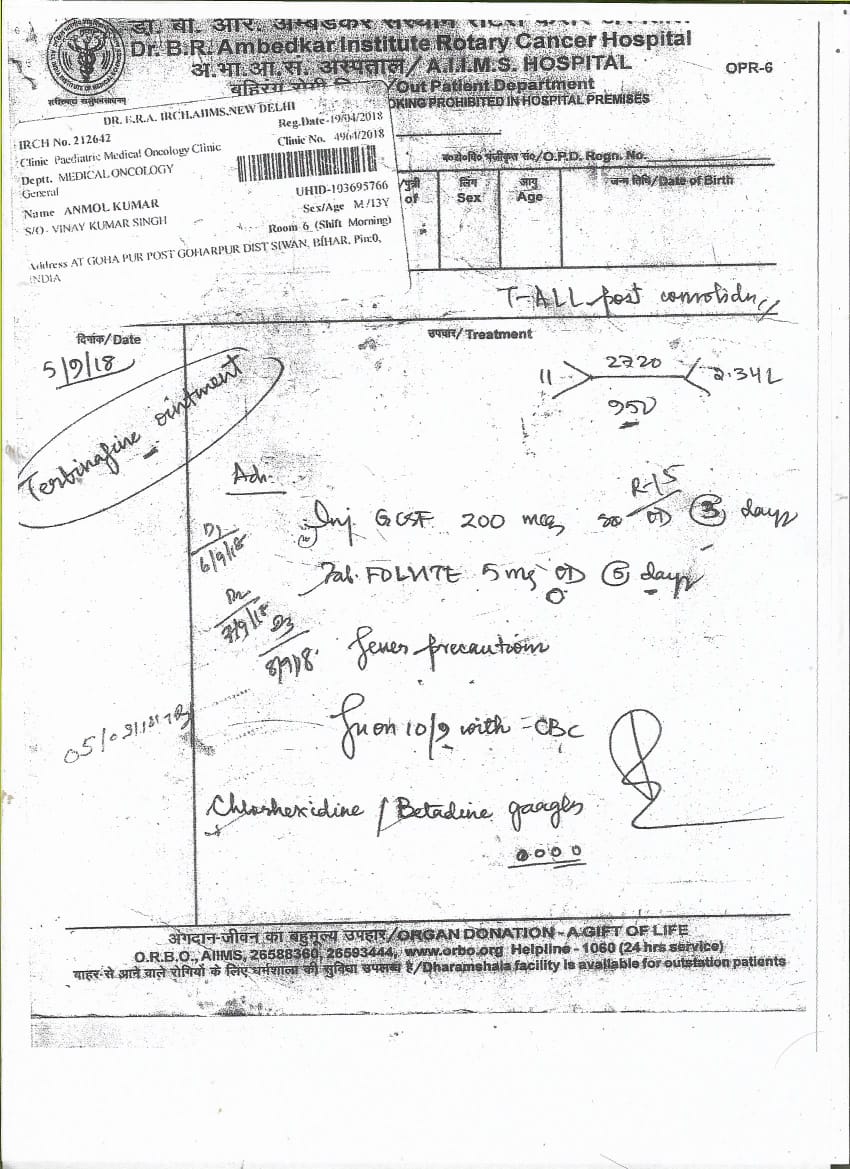 डा. बी. आर. अम्बेडकर संस्थान रोटरी कैंसर अस्पताल
Dr. B.R. Ambedkar Institute Rotary Cancer Hospital
अ.भा.आ.सं. अस्पताल/A.I.I.M.S. HOSPITAL
OPR-6
बहिरंग रोगी
Out Patient Department
KING PROHIBITED IN HOSPITAL PREMISES
DR. B.R.A. IRCH,AIIMS,NEW DELHI
IRCH No. 212642
Reg.Date-19/04/2018
Clinic Paediatric Medical Oncology Clinic
Clinic No. 4964/2018
Deptt. MEDICAL ONCOLOGY
General
UHID-193695766
Name ANMOL KUMAR
Sex/Age M/13Y
S/O- VINAY KUMAR SINGH
Room 6 (Shift Morning)
Address AT GOHA PUR POST GOHARPUR DIST SIWAN, BIHAR, Pin:0,
INDIA
/O.P.D. Regn. No.
/पुत्री
of
लिंग
Sex
आयु
Age
जन्म तिथि/Date of Birth
T-ALL post
दिनांक/Date
उपचार/Treatment
5/9/18
11 2720 2.34L
950
Terbinafine ointment
Adv.
R-15
Inj. GCSF 200 mcg OD 3 days
D1
6/9/18
Tab. FOLVITE 5mg OD 5 days
D2
7/9/18
D3
8/9/18
Fever precautions
on 10/9 with - CBC
Chlorhexidine / Betadine gargles
अंगदान-जीवन का बहुमूल्य उपहार/ORGAN DONATION - A GIFT OF LIFE
O.R.B.O., AIIMS, 26588360, 26593444, www.orbo.org Helpline - 1060 (24 hrs service)
बाहर से आने वाले रोगियों के लिए धर्मशाला की सुविधा उपलब्ध है/Dharamshala facility is available for outstation patients